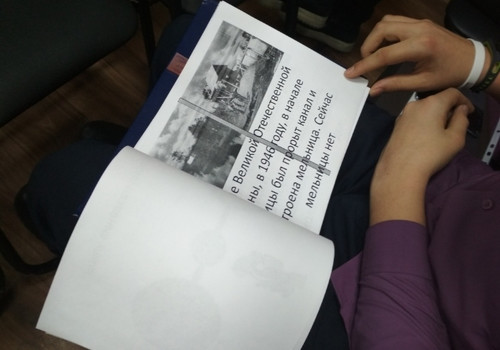 е Великой Отечественной
ны, в 1946 году, в начале
ицы был прорыт канал и
троена мельница. Сейчас
мельницы нет